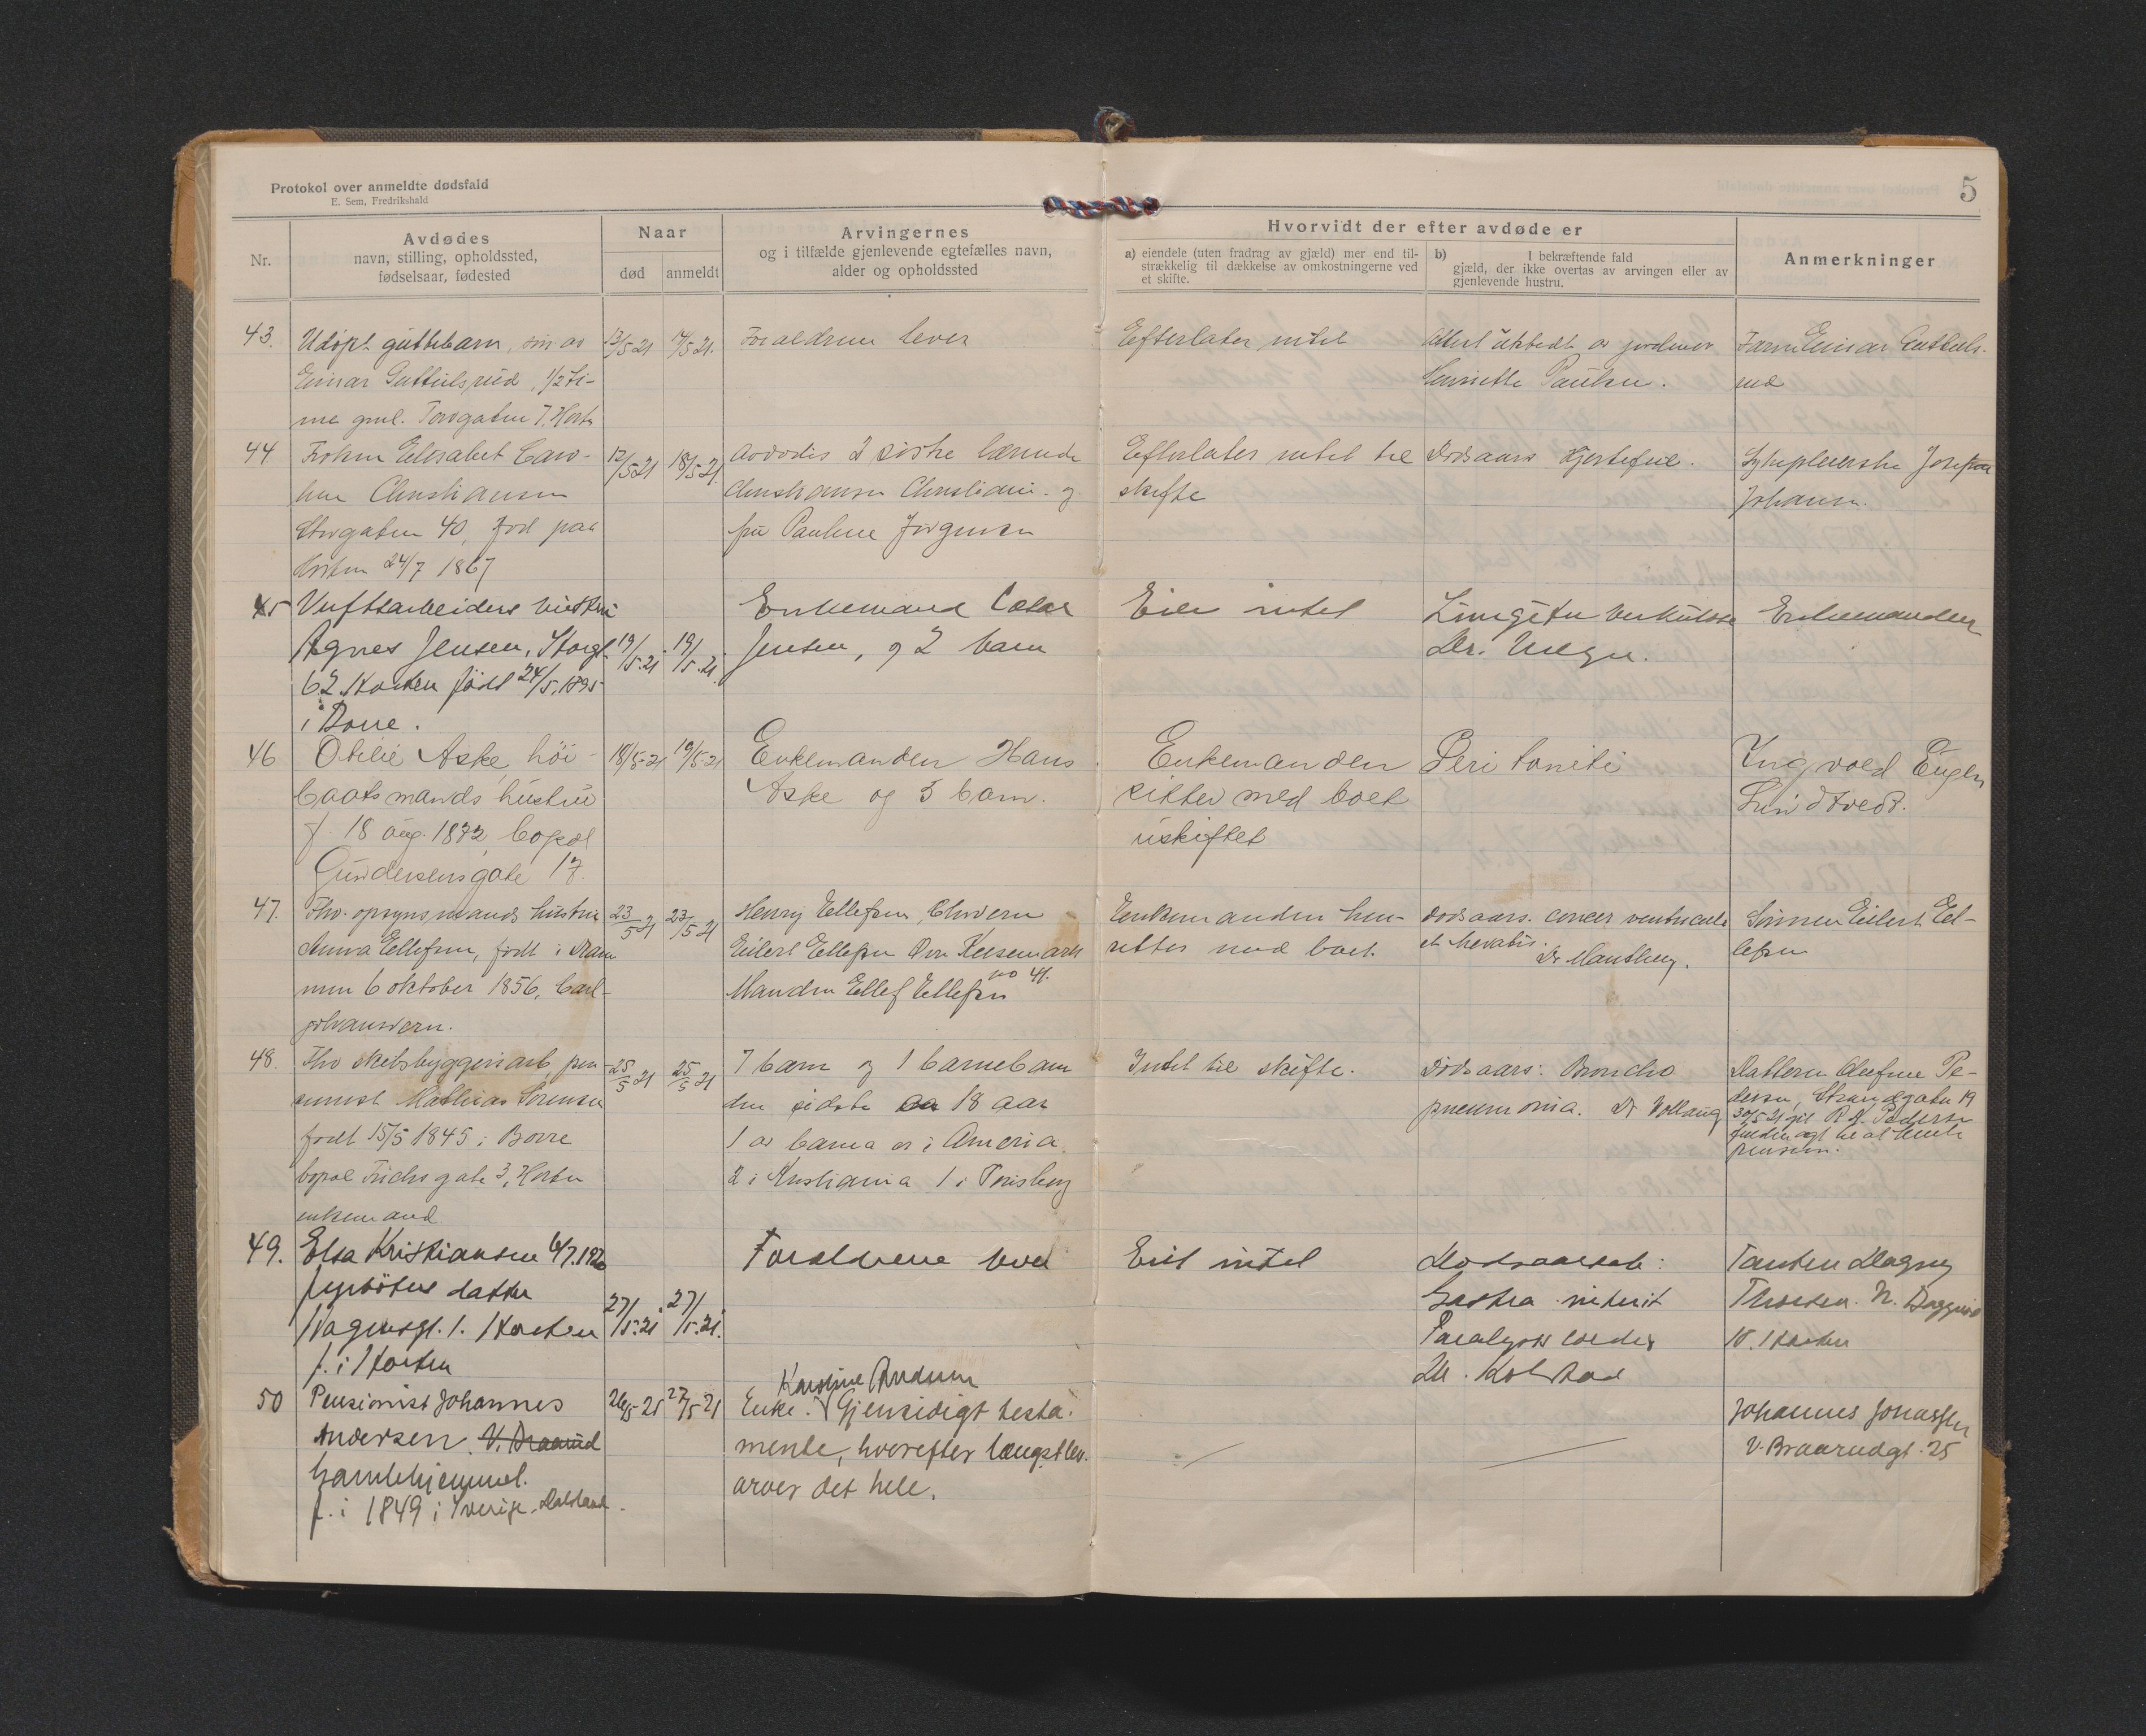 Protokol over anmeldte dødsfald
E. Sem, Fredrikshald
5
Nr.
Avdødes
navn, stilling, opholdssted,
fødselsaar, fødested
Naar
død
anmeldt
Arvingernes
og i tilfælde gjenlevende egtefælles navn,
alder og opholdssted
Hvorvidt der efter avdøde er
a) eiendele (uten fradrag av gjæld) mer end til-
strækkelig til dækkelse av omkostningerne ved
et skifte.
b) I bekræftende fald
gjæld, der ikke overtas av arvingen eller av
gjenlevende hustru.
Anmerkninger
43. Udøpt guttebarn, søn av
Einar Guttulsrud, 1/2 ti-
me gml. Torvgaten 7, Horten
13/5 21
17/5 21.
Foraldrene lever
Efterlater intet
Attest utstedt av jordmor
Henriette Paulsen.
Faren Einar Guttuls-
rud
44 Frøken Elisabet Caro-
line Christiansen
Storgaten 40, født paa
Horten 24/7 1867
12/5 21
18/5 21.
Avdødes 2 søstre
Christiansen Christiania og
fru Pauline Jørgensen
Efterlater intet til
skifte
Dødsaars Hjertefeil.
Sykepleierske Josefine
Johansen.
45 Verftsarbeiders hustru
Agnes Jensen, Storgt.
62 Horten født 24/5 1895
i Borre.
19/5.21
19/5.21.
Enkemand Oskar
Jensen, og 2 barn
Eier intet
Lungetuberkulose
Dr. Megn.
Enkemanden
46 Otilie Aske, høi-
baatsmands hustru
f. 18 aug. 1872, bopæl
Gundersensgate 17.
18/5-21
19/5-21
Enkemanden Hans
Aske og 3 barn.
Enkemanden
sitter med boet
uskiftet
Peritoniti
Ingvald Eugen
Lindtvedt.
47. Fhv. opsynsmands hustru
Anna Ellefsen, født i Dram
men 6 oktober 1856, Carl-
johansvern.
23/5 21
23/5 21
Henry Ellefsen,
Eilert Ellefsen
no 41.
Manden Ellef Ellefsen
Enkemanden hen-
sitter med boet.
Dødsaars. cancer ventriculi
et hepatis.
Sønnen Eilert El-
lefsen
48. Fhv skibsbyggeriarb, pen
sionist Mathias Sørensen
født 15/5 1845 i Borre
bopæl Friisgate 3, Horten
enkemand
25/5 21
25/5 21
7 barn og 1 barnebarn
den sidste 18 aar
1 av barna er i America
2 i Kristiania 1 i Tønsberg
Intet til skifte.
Dødsaars: Broncho
pneumonia. Dr Vollaug
Datteren Olefine Pe-
dersen, Strandgaten 19
30/5 21 git R. A. Pedersen
fuldmagt til at hente
pensionen.
49. Elsa Kristiansen 6/7.1920
fyrbøters datter
Vognsgt. 1. Horten
f. i Horten
27/5.21
27/5.21.
Foraldrene lever
Eier intet
Dødsaarsak:
Gastro enterit
Paralysis cordis
Dr. Kolstad
Tanten Dagny
Thorsen. N. Baggerud
10. Horten
50 Pensionist Johannes
Andersen. V. Braarud
Gamlehjemmet.
f. i 1849 i Sverige. Dalsland.
26/5 21
27/5 21
Karoline Andersen
Enke. Gjensidigt testa-
mente, hvorefter længstlev.
arver det hele.
Johannes Jonassen
V. Braarudgt. 25